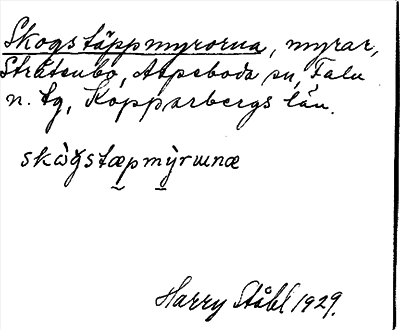 Skogstäppmyrorna, myrar,
Stråtenbo, Aspeboda sn, Falu
n. tg, Kopparbergs län.
skὼğstæpmỳrɯnæ
Harry Ståhl 1929.